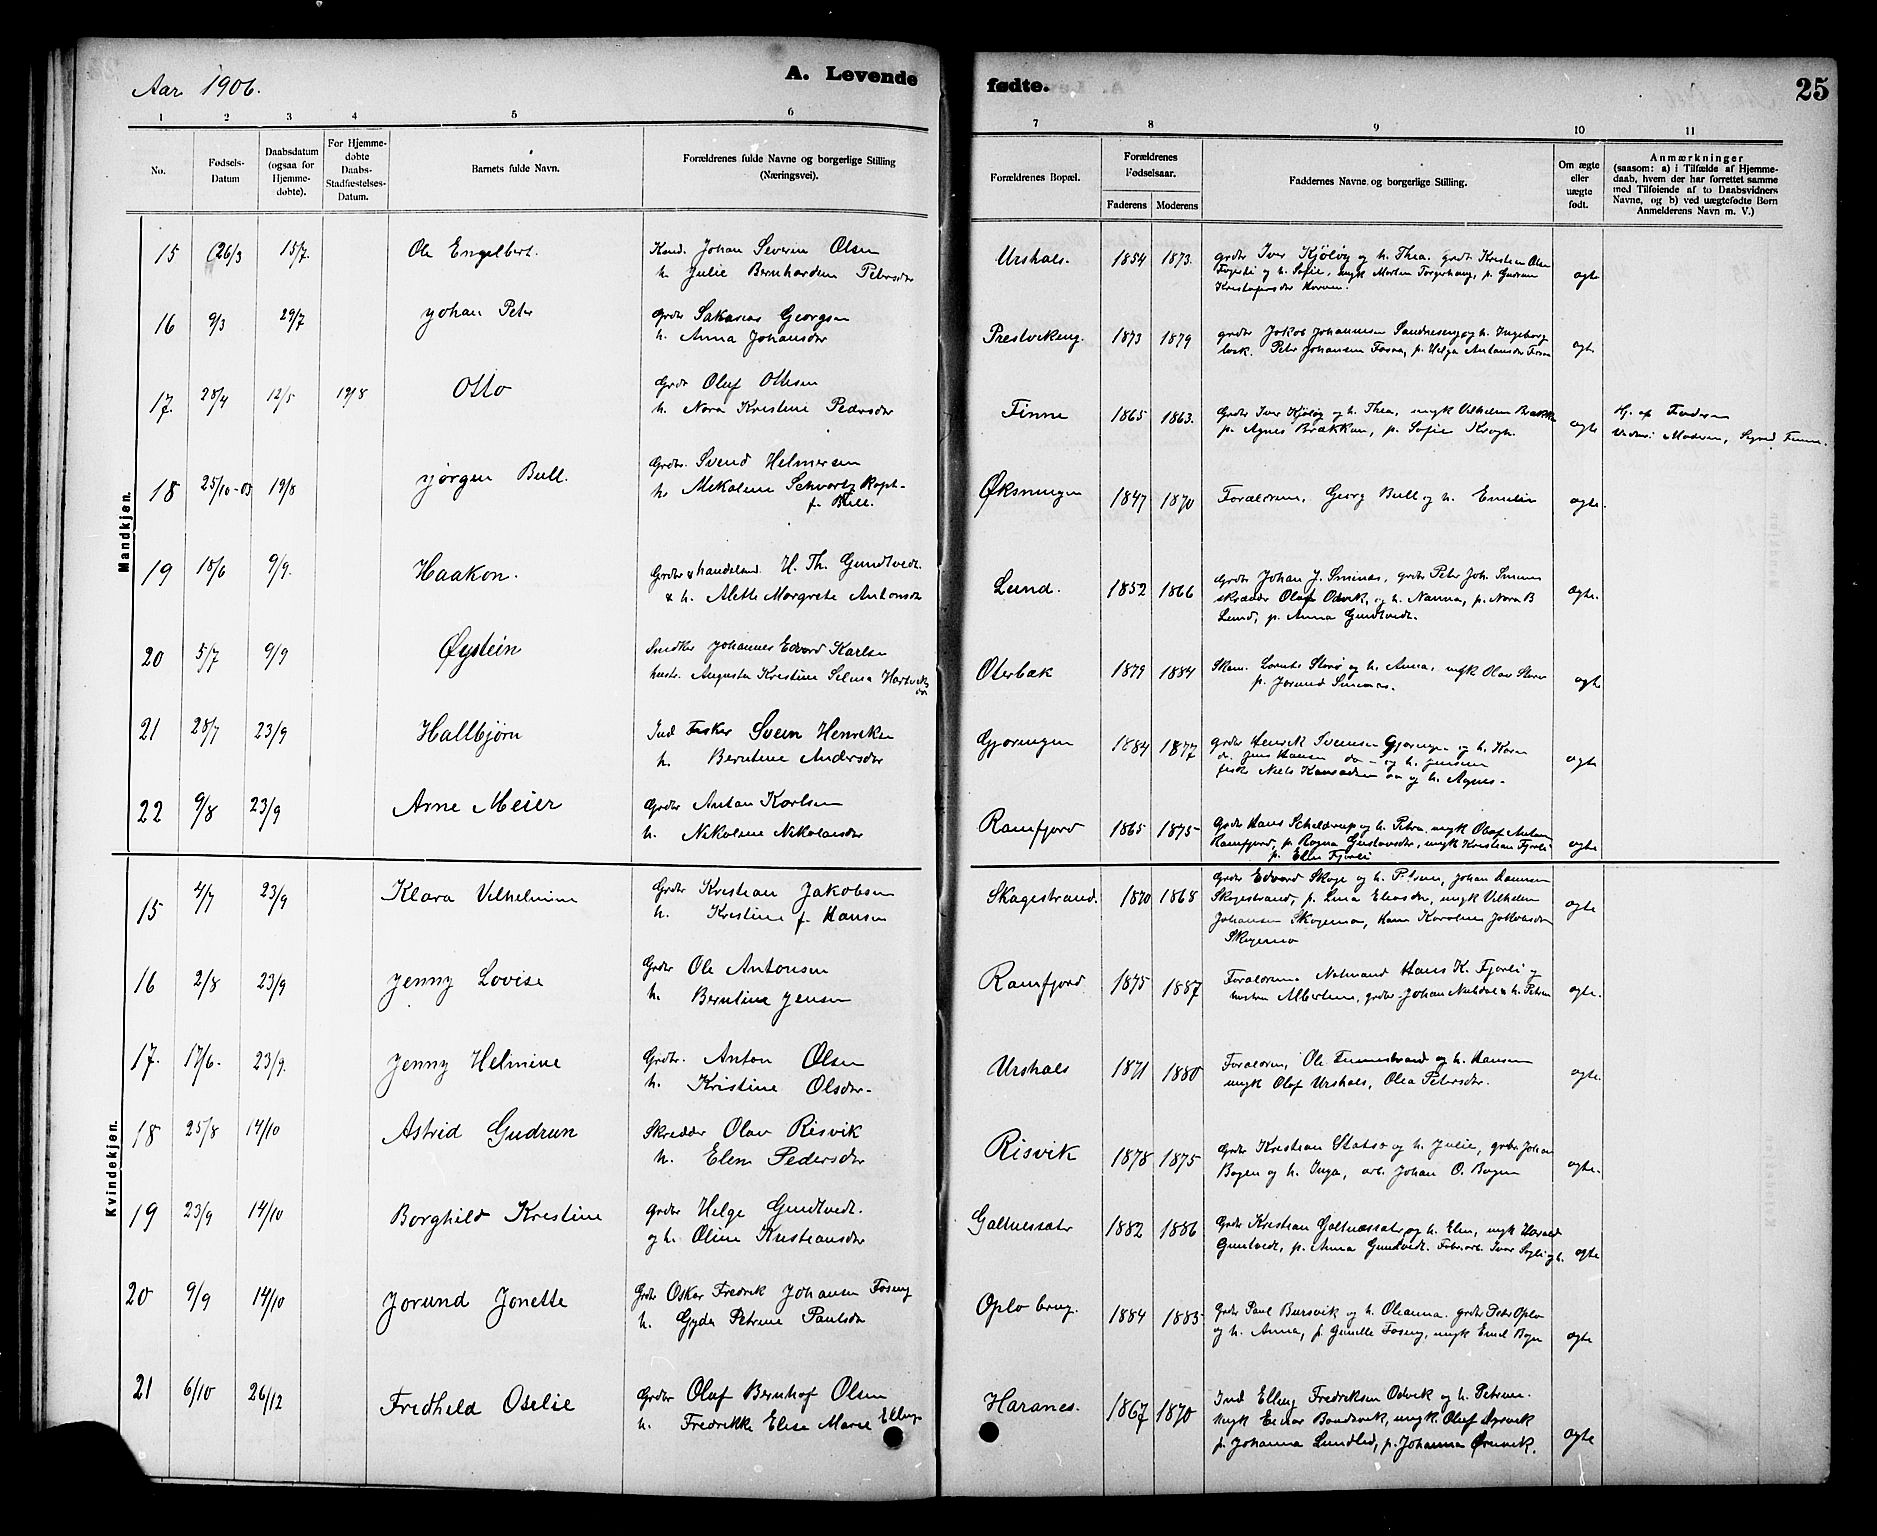 Aar 1906.
A. Levende
fødte.
25
1 2 3 4 5 6
7 8 9 10 11
No.
Fødsels-
Datum
Daabsdatum
(ogsaa for
Hjemme-
døbte).
For Hjemme-
døbte
Daabs-
Stadfæstelses-
Datum.
Barnets fulde Navn.
Forældrenes fulde Navne og borgerlige Stilling
(Næringsvei).
Forældrenes Bopæl.
Forældrenes
Fødselsaar.
Faderens Moderens
Faddernes Navne og borgerlige Stilling.
Om ægte
eller
uægte
født.
Anmærkninger
(saasom: a) i Tilfælde af Hjemme-
daab, hvem der har forrettet samme
med Tilføiende af to Daabsvidners
Navne, og b) ved uægtefødte Børn
Anmelderens Navn m. V.)
Mandkjøn.
15 26/3 15/7. Ole Engelbert. Johan Severin Olsen
h. Julie Bernhardine Petersdtr
Urshals. 1854 1873. grdbr Iver Kjølsøy og h. Thea. grdbr. Kristian Olsen
og h. Sofie, p. Gudrun
ægte
16 9/3 29/7 Johan Peter Grdbr Sakarias Georgsen
h. Anna Johansdtr
Prestvikeng. 1873 1879 grdbr Jakob Johannesen Sandneseng og h. Ingeborg
Peter Johansen Fosna, p. Helga Antonsdtr
ægte
17. 28/4 12/5 19/8 Otto Grdbr Oluf Ottesen
h. Nora Kristine Pedersdtr
Finne 1865 1863. Grdbr Iver Kjølsøy og h. Thea, ungk Vilhelm Brækka
p. Agnes Brækkan, p. Sofie Krogh.
ægte
Hj. af Faderen
Moderen, Sigrid Finne.
18 25/10-05 19/8 Jørgen Bull. Grdbr. Svend Helmersen
h. Mekaline Schvartzkoph
f. Bull.
Øksningen 1847 1870 Forældrene, Georg Bull og h. Emilie
ægte.
19 18/6 9/9. Haakon. Grdbr & handelsmd. H. Th. Gundtvedt.
& h. Alette Margrete Antonsdtr
Lund. 1852 1866 Grdbr Johan J. Simnes, grdbr Peter Joh. Simnes
skrædder Olaf Odvik, og h. Nanna, p. Nora B
Lund, p. Anna Gundtvedt.
ægte.
20 5/7 9/9 Øystein Snedker Johannes Edvard Karlsen
hustr. Augusta Kristine Selma Hartviks
dtr
Oterbæk 1879 1884 og h. Anna, ungk Olav
p. Jorund Simnes.
ægte
21 28/7 23/9 Hallbjørn Ind Fisker Svein Henriksen
h. Berntine Andersdtr
Gjæringen 1884 1877 grdbr Henrik Svensen Gjæringen og h. Karen
do. Jens Hansen do og h. Jensine
fisker Niels og h. Agnes.
ægte
22 9/8 23/9 Arne Meier Grdbr Anton Karlsen
h. Nikoline Nikolaisdtr
Ramfjord 1865 1875 Grdbr Hans Schelderup og h. Petra, ungk Olaf Antonsen
Ramfjord, p. Ragna Gustavsdtr, ungk Kristian Fjorli
p. Elen Fjorli
ægte
Kvindekjøn.
15 4/7 23/9 Klara Vilhelmine Grdbr Kristian Jakobsen
h. Kristine f. Hansen
Skagestrand. 1870 1868 Grdbr Edvard Skage og h. Petrine, Johan
Skagestrand, p. Lina Eliasdtr, ungk Vilhelm
Johansen Skagemo, Karoline Jakobsdtr
Skagemo
ægte
16 2/8 23/9 Jenny Lovise Grdbr Ole Antonsen
h. Berntine Jensen
Ramfjord 1875 1887 Forældrene Hans K. Fjorli og
hustru Albertine, grdbr Johan h. Petrine
ægte.
17. 17/6. 23/9. Jenny Helmine Grdbr. Anton Olsen
h. Kristine Olsdtr.
Urshals 1871 1880 Forældrene, Ole Finnestrand og h. Hansine
ungk Olaf Urshals, Olea Petersdtr.
ægte.
18 25/8 14/10 Astrid Gudrun Skredder Olav Risvik
h. Elen Pedersdtr
Risvik 1878 1875 Grdbr Kristian og h. Julie, grdbr Johan
Bogen og h. Inga, arb. Johan O. Bogen
ægte.
19 23/9 14/10 Borghild Kristine Grdbr Helge Gundtvedt.
og h. Oline Kristiansdtr
Galtnessætr 1882 1886 Grdbr Kristian Galtnæssætr og h. Elen, ungk Harald
Gundtvedt, p. Anna Gundtvedt. Iver og h.
ægte
20 9/9 14/10 Jorund Jonette Grdbr Oskar Fredrik Johansen Foseng
h. Gyda Petrine Paulsdtr
Oplø brug. 1884 1883 Grdbr Paul Bursvik og h. Oleanna. grdbr Peter Oplø
og h. Anna, p. Gunelle Foseng, ungk Emil Bogen
ægte
21 6/10 26/12 Fredheld Otelie Grdbr Oluf Bernhof Olsen
h. Fredrikke Elise Marie Ellings
Haranes. 1867 1870 Ind Elling Fredriksen Odvik og h. Petrine.
ungk Einar Bondevik, ungk. Oluf
p. Johanna Lundlid, p. Johanna Ørsvik.
ægte